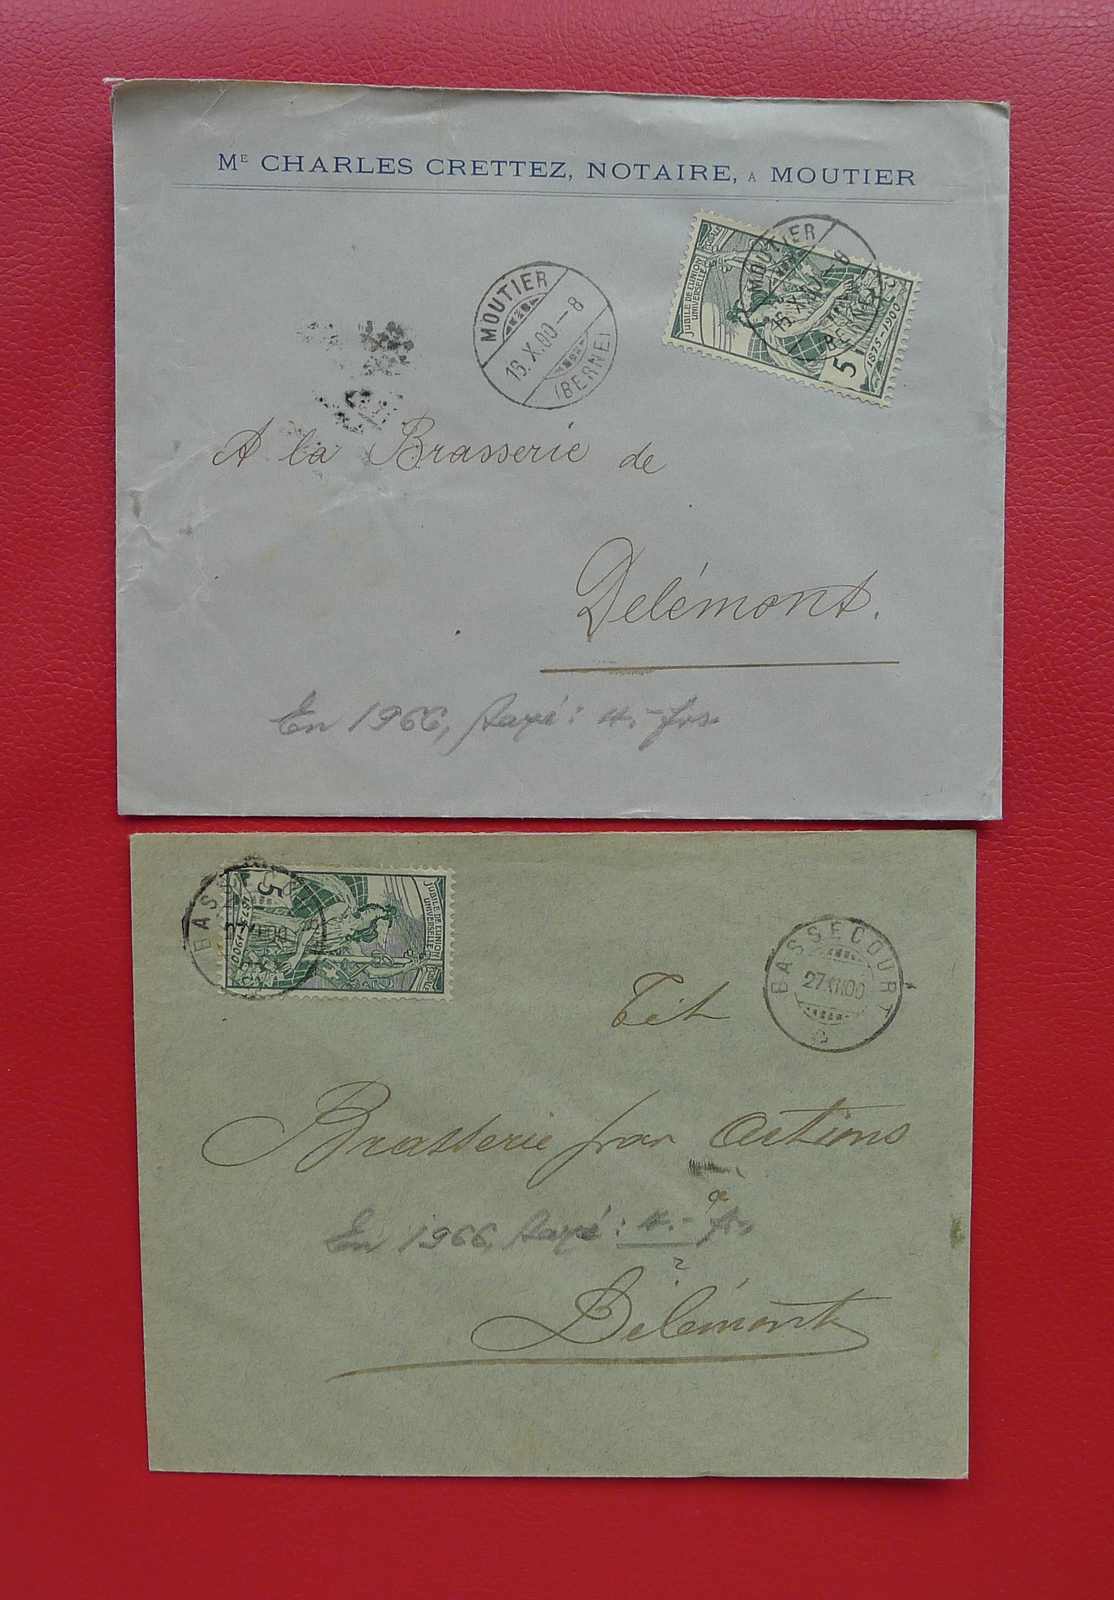 Mᴱ CHARLES CRETTEZ, NOTAIRE, A MOUTIER
MOUTIER
16.X.00-8
(BERNE)
MOUTIER
16.X.00
JUBILÉ DE L'UNION
UNIVERSELLE
5
1875-1900
A la Brasserie de
Delémont.
En 1966, payé: 4.- frs.
5
1875-1900
JUBILÉ DE L'UNION
UNIVERSELLE
BASSECOURT
27 XII 00
Tit
Brasserie par Actions
En 1966, payé: 4.- fr.
?
Delémont